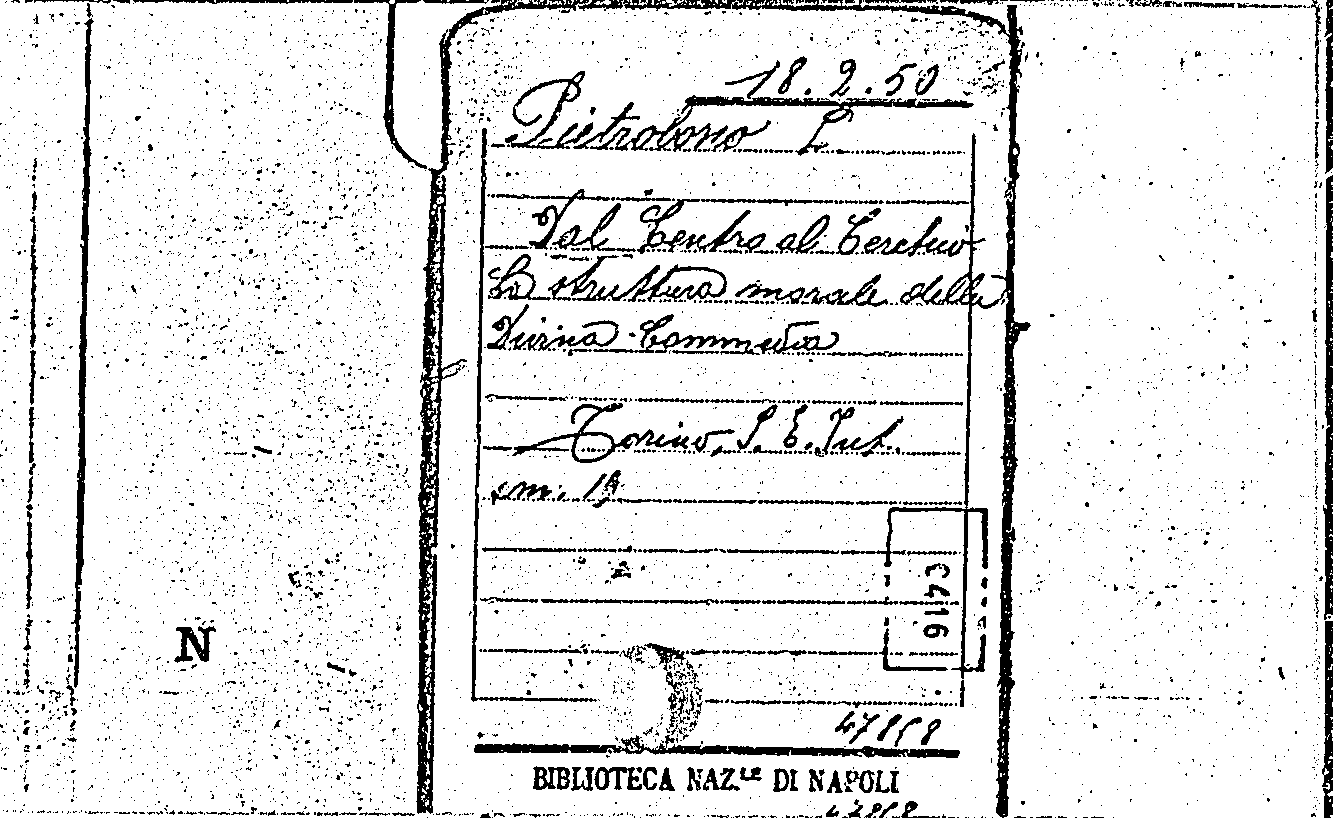 18. 2. 50
Pietrobono L.
Dal Centro al Cerchio
La struttura morale della
Divina Commedia
Torino, S. E. Int.
cm. 19
3416
N
47858
BIBLIOTECA NAZ.LE DI NAPOLI
47858